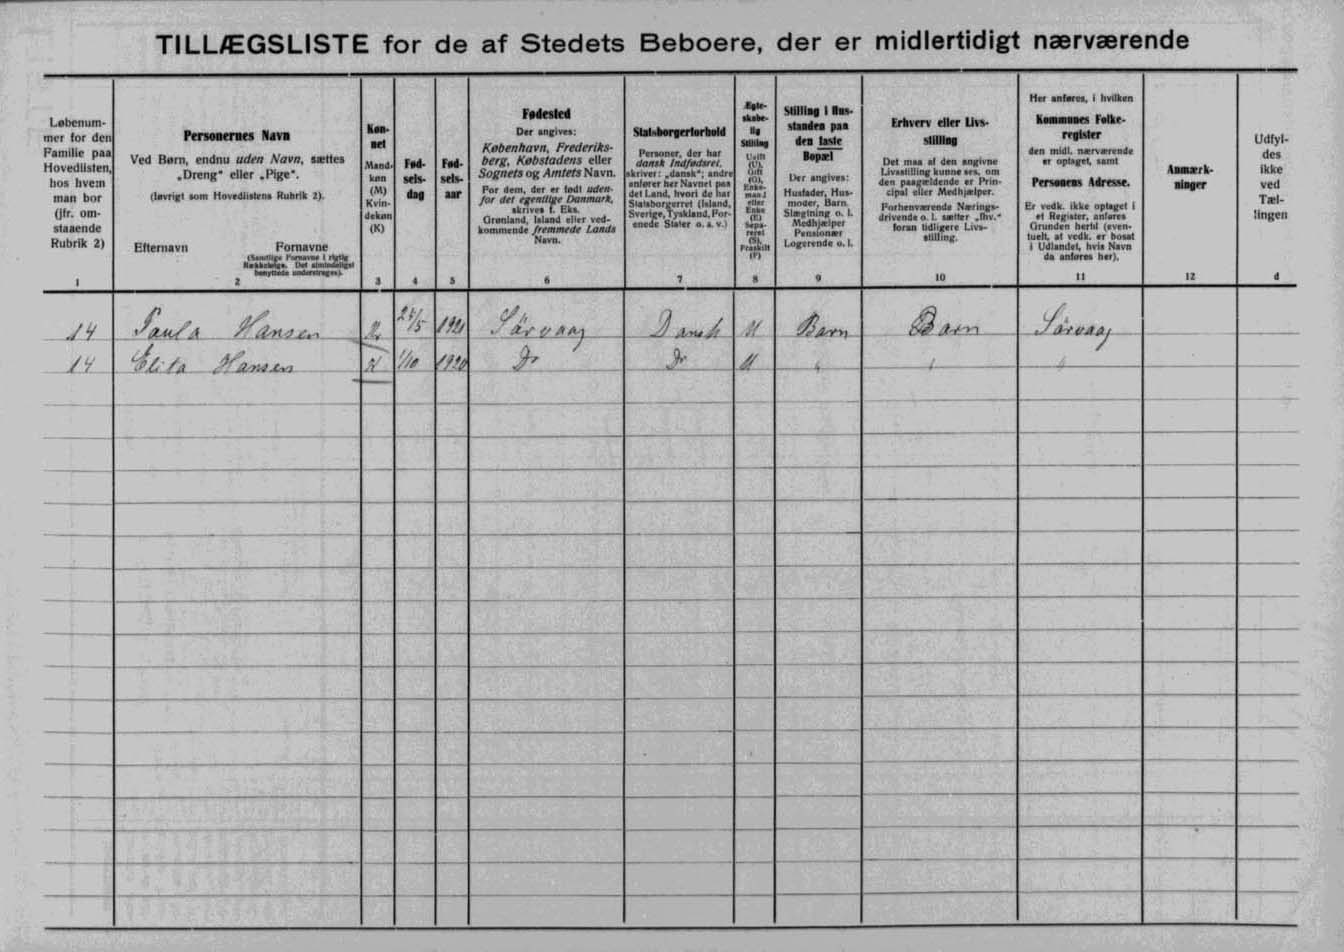 TILLÆGSLISTE for de af Stedets Beboere, der er midlertidigt nærværende
Løbenum-
mer for den
Familie paa
Hovedlisten,
hos hvem
man bor
(jfr. om-
staaende
Rubrik 2)
1
Personernes Navn
Ved Børn, endnu uden Navn, sættes
„Dreng“ eller „Pige“.
(Iøvrigt som Hovedlistens Rubrik 2).
Efternavn Fornavne
(Samtlige Fornavne i rigtig
Rækkefølge. Det almindeligst
benyttede understreges).
2
Køn-
net
Mand-
køn
(M)
Kvin-
dekøn
(K)
3
Fød-
sels-
dag
4
Fød-
sels-
aar
5
Fødested
Der angives:
København, Frederiks-
berg, Købstadens eller
Sognets og Amtets Navn.
For dem, der er født uden-
for det egentlige Danmark,
skrives f. Eks.
Grønland, Island eller ved-
kommende fremmede Lands
Navn.
6
Statsborgerforhold
Personer, der har
dansk Indfødsret,
skriver: „dansk“; andre
anfører her Navnet paa
det Land, hvori de har
Statsborgerret (Island,
Sverige, Tyskland, For-
enede Stater o. s. v.)
7
Ægte-
skabe-
lig
Stilling
Ugift
(U),
Gift
(G),
Enke-
mand
eller
Enke
(E)
Sepa-
reret
(S),
Fraskilt
(F)
8
Stilling i Hus-
standen paa
den faste
Bopæl
Der angives:
Husfader, Hus-
moder, Barn,
Slægtning o. l.
Medhjælper
Pensionær
Logerende o. l.
9
Erhverv eller Livs-
stilling
Det maa af den angivne
Livsstilling kunne ses, om
den paagældende er Prin-
cipal eller Medhjælper.
Forhenværende Nærings-
drivende o. l. sætter „fhv.“
foran tidligere Livs-
stilling.
10
Her anføres, i hvilken
Kommunes Folke-
register
den midl. nærværende
er optaget, samt
Personens Adresse.
Er vedk. ikke optaget i
et Register, anføres
Grunden hertil (even-
tuelt, at vedk. er bosat
i Udlandet, hvis Navn
da anføres her).
11
Anmærk-
ninger
12
Udfyl-
des
ikke
ved
Tæl-
lingen
d
14 Paula Hansen 24/5 1921 Sörvaag Dansk U Barn Barn Sörvaag
14 Elita Hansen 1/10 1920 Do Do U " " "